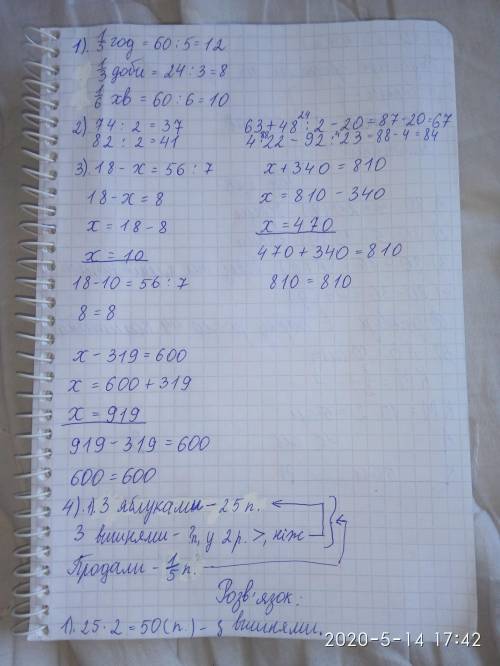 1). 1/5 год = 60 : 5 = 12
1/3 доби = 24 : 3 = 8
1/6 хв = 60 : 6 = 10
2) 74 : 2 = 37
82 : 2 = 41
63 + 48 : 2 - 20 = 87 - 20 = 67
4 · 22 - 92 : 23 = 88 - 4 = 84
3) 18 - x = 56 : 7
18 - x = 8
x = 18 - 8
x = 10
18 - 10 = 56 : 7
8 = 8
x + 340 = 810
x = 810 - 340
x = 470
470 + 340 = 810
810 = 810
x - 319 = 600
x = 600 + 319
x = 919
919 - 319 = 600
600 = 600
4) 1. З яблуками - 25 п.
З вишнями - ?п, у 2р. >, ніж
Продали - 1/5 п.
Розв'язок:
1). 25 · 2 = 50 (п.) - з вишнями.
2020-5-14 17:42